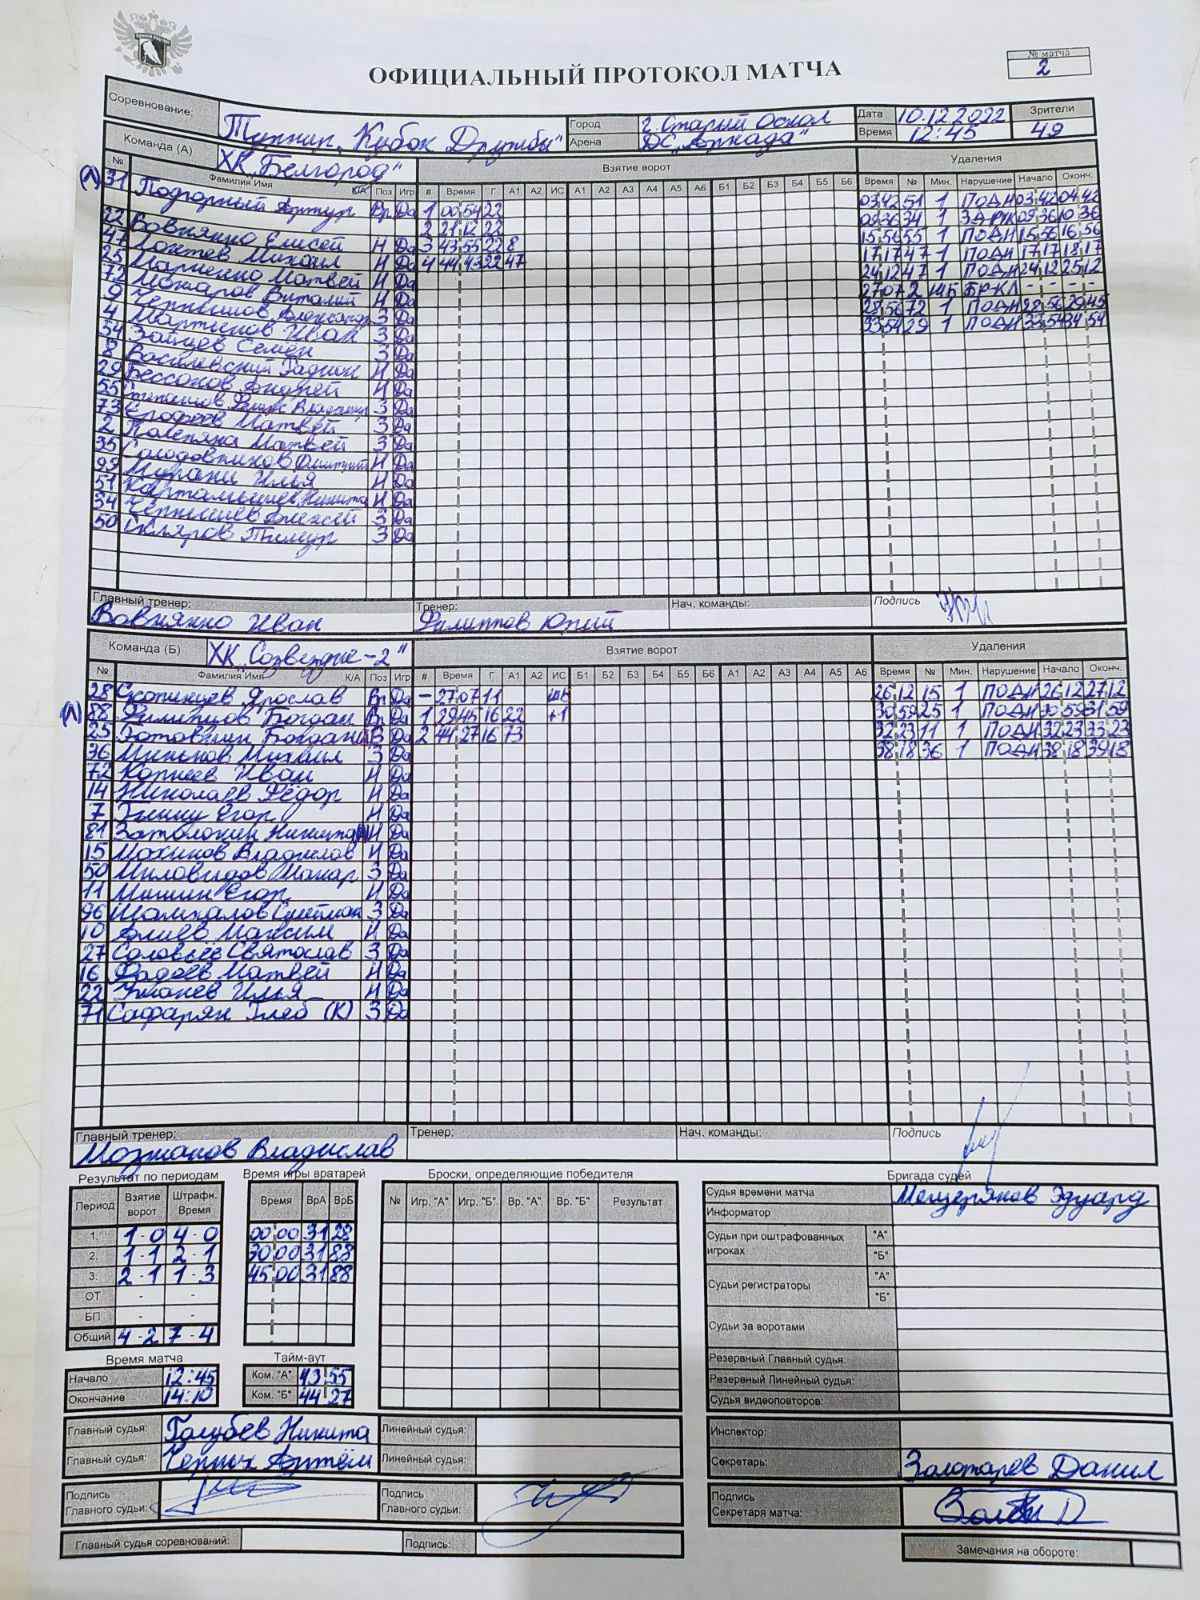 ОФИЦИАЛЬНЫЙ ПРОТОКОЛ МАТЧА
№ матча
2
Соревнование: Турнир "Кубок Дружбы" Город г. Старый Оскол Дата 10.12.2022 Зрители
Арена ДС "Аркада" Время 12:45 49
Команда (А) ХК "Белгород" Взятие ворот Удаления
№ Фамилия Имя К/А Поз Игр # Время Г А1 А2 ИС А1 А2 А3 А4 А5 А6 Б1 Б2 Б3 Б4 Б5 Б6 Время № Мин. Нарушение Начало Оконч.
31 Подгорный Артур Вр Да 1 00 54 22 03 42 51 1 ПОДН 03 42 04 42
2 21 12 22 09 36 34 1 ЗАРК 09 36 10 36
22 Вовнянко Елисей Н Да 3 43 55 22 8 15 56 55 1 ПОДН 15 56 16 56
47 Локтев Михаил Н Да 4 44 43 22 47 17 17 47 1 ПОДН 17 17 18 17
25 Марченко Матвей Н Да 24 12 47 1 ПОДН 24 12 25 12
72 Можаров Виталий Н Да 27 07 2 ШБ БРКЛ - - - -
9 Чернышов Александр З Да 28 56 72 1 ПОДН 28 56 29 45
4 Мартынов Иван З Да 33 54 29 1 ПОДН 33 54 34 54
54 Зайцев Семён З Да
8 Василевский Родион Н Да
29 Бессонов Андрей Н Да
55 З Да
73 Ерофеев Матвей З Да
2 Матвей З Да
35 Солодовников Дмитрий Н Да
99 Илья Н Да
51 Картамышев Никита Н Да
34 Чернышев Алексей З Да
50 Скляров Тимур З Да
Главный тренер: Тренер: Нач. команды: Подпись
Вовнянко Иван Филиппов Юрий
Команда (Б) ХК "Созвездие-2" Взятие ворот Удаления
№ Фамилия Имя К/А Поз Игр # Время Г А1 А2 ИС Б1 Б2 Б3 Б4 Б5 Б6 А1 А2 А3 А4 А5 А6 Время № Мин. Нарушение Начало Оконч.
28 Скопинцев Ярослав Вр Да - 27 07 11 ШБ 26 12 15 1 ПОДН 26 12 27 12
88 Филипцов Богдан Вр Да 1 29 45 16 22 +1 30 59 25 1 ПОДН 30 59 31 59
25 Богдан З Да 2 44 27 16 73 32 23 11 1 ПОДН 32 23 33 23
36 Миньков Михаил З Да 38 18 36 1 ПОДН 38 18 39 18
72 Корнеев Иван Н Да
14 Николаев Фёдор Н Да
7 Егор Н Да
81 Затолокин Никита Н Да
15 Владислав Н Да
50 Миловидов Макар З Да
11 Мишин Егор Н Да
96 Шамхалов Сулейман З Да
10 Алиев Максим Н Да
27 Соловьёв Святослав З Да
16 Фадеев Матвей Н Да
22 Илья Н Да
71 Сафарян Глеб (К) З Да
Главный тренер: Тренер: Нач. команды: Подпись
Мозжаков Владислав
Результат по периодам Время игры вратарей Броски, определяющие победителя Бригада судей
Период Взятие ворот Штрафн. Время
1. 1-0 4-0
2. 1-1 2-1
3. 2-1 1-3
ОТ - -
БП - -
Общий 4-2 7-4
Время ВрА ВрБ
00 00 31 28
30 00 31 88
45 00 31 88
№ Игр. "А" Игр. "Б" Вр. "А" Вр. "Б" Результат
Судья времени матча Мещеряков Эдуард
Информатор
Судьи при оштрафованных игроках "А"
"Б"
Судьи регистраторы "А"
"Б"
Судьи за воротами
Резервный Главный судья:
Резервный Линейный судья:
Судья видеоповторов:
Время матча Тайм-аут
Начало 12:45 Ком. "А" 43 55
Окончание 14:10 Ком. "Б" 44 27
Главный судья: Голубев Никита Линейный судья: Инспектор:
Главный судья: Черных Артём Линейный судья: Секретарь: Золотарев Данил
Подпись Главного судьи: Подпись Главного судьи: Подпись Секретаря матча:
Главный судья соревнований: Подпись: Замечания на обороте: